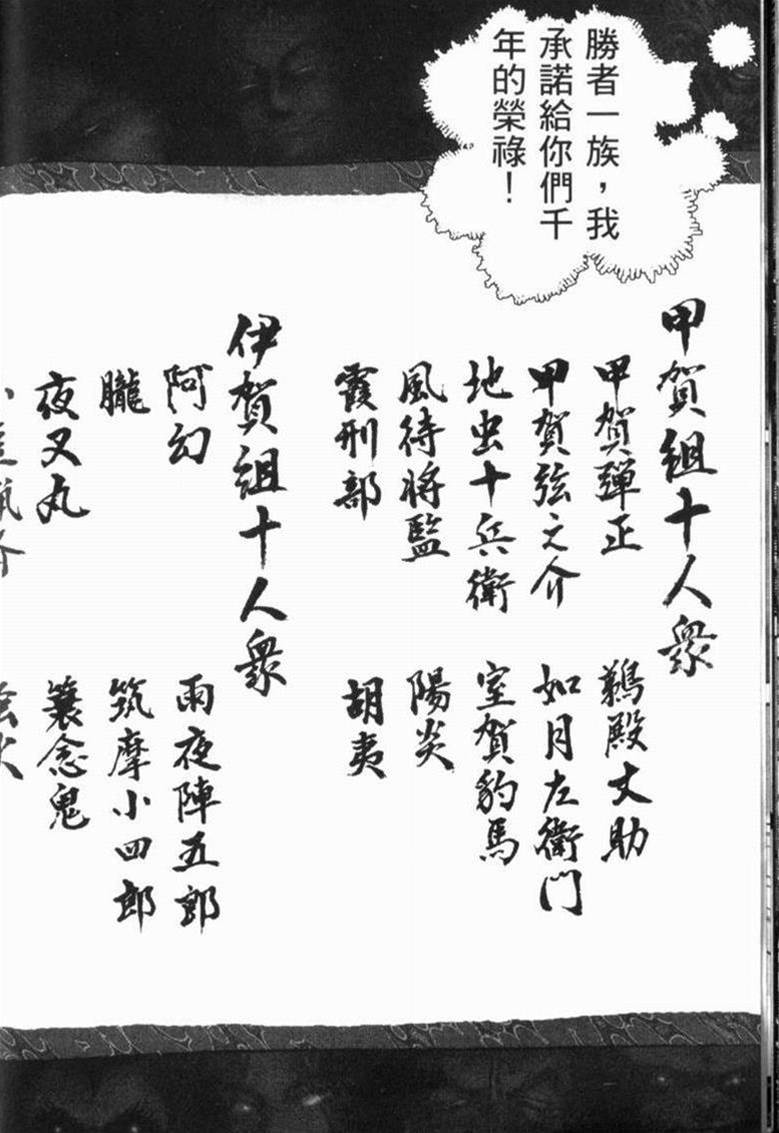 勝者一族，我
承諾給你們千
年的榮祿！
甲賀組十人衆
甲賀彈正
鵜殿丈助
甲賀弦之介
如月左衛門
地虫十兵衛
室賀豹馬
風待将監
陽炎
霞刑部
胡夷
伊賀組十人衆
阿幻
雨夜陣五郎
朧
筑摩小四郎
夜叉丸
蓑念鬼